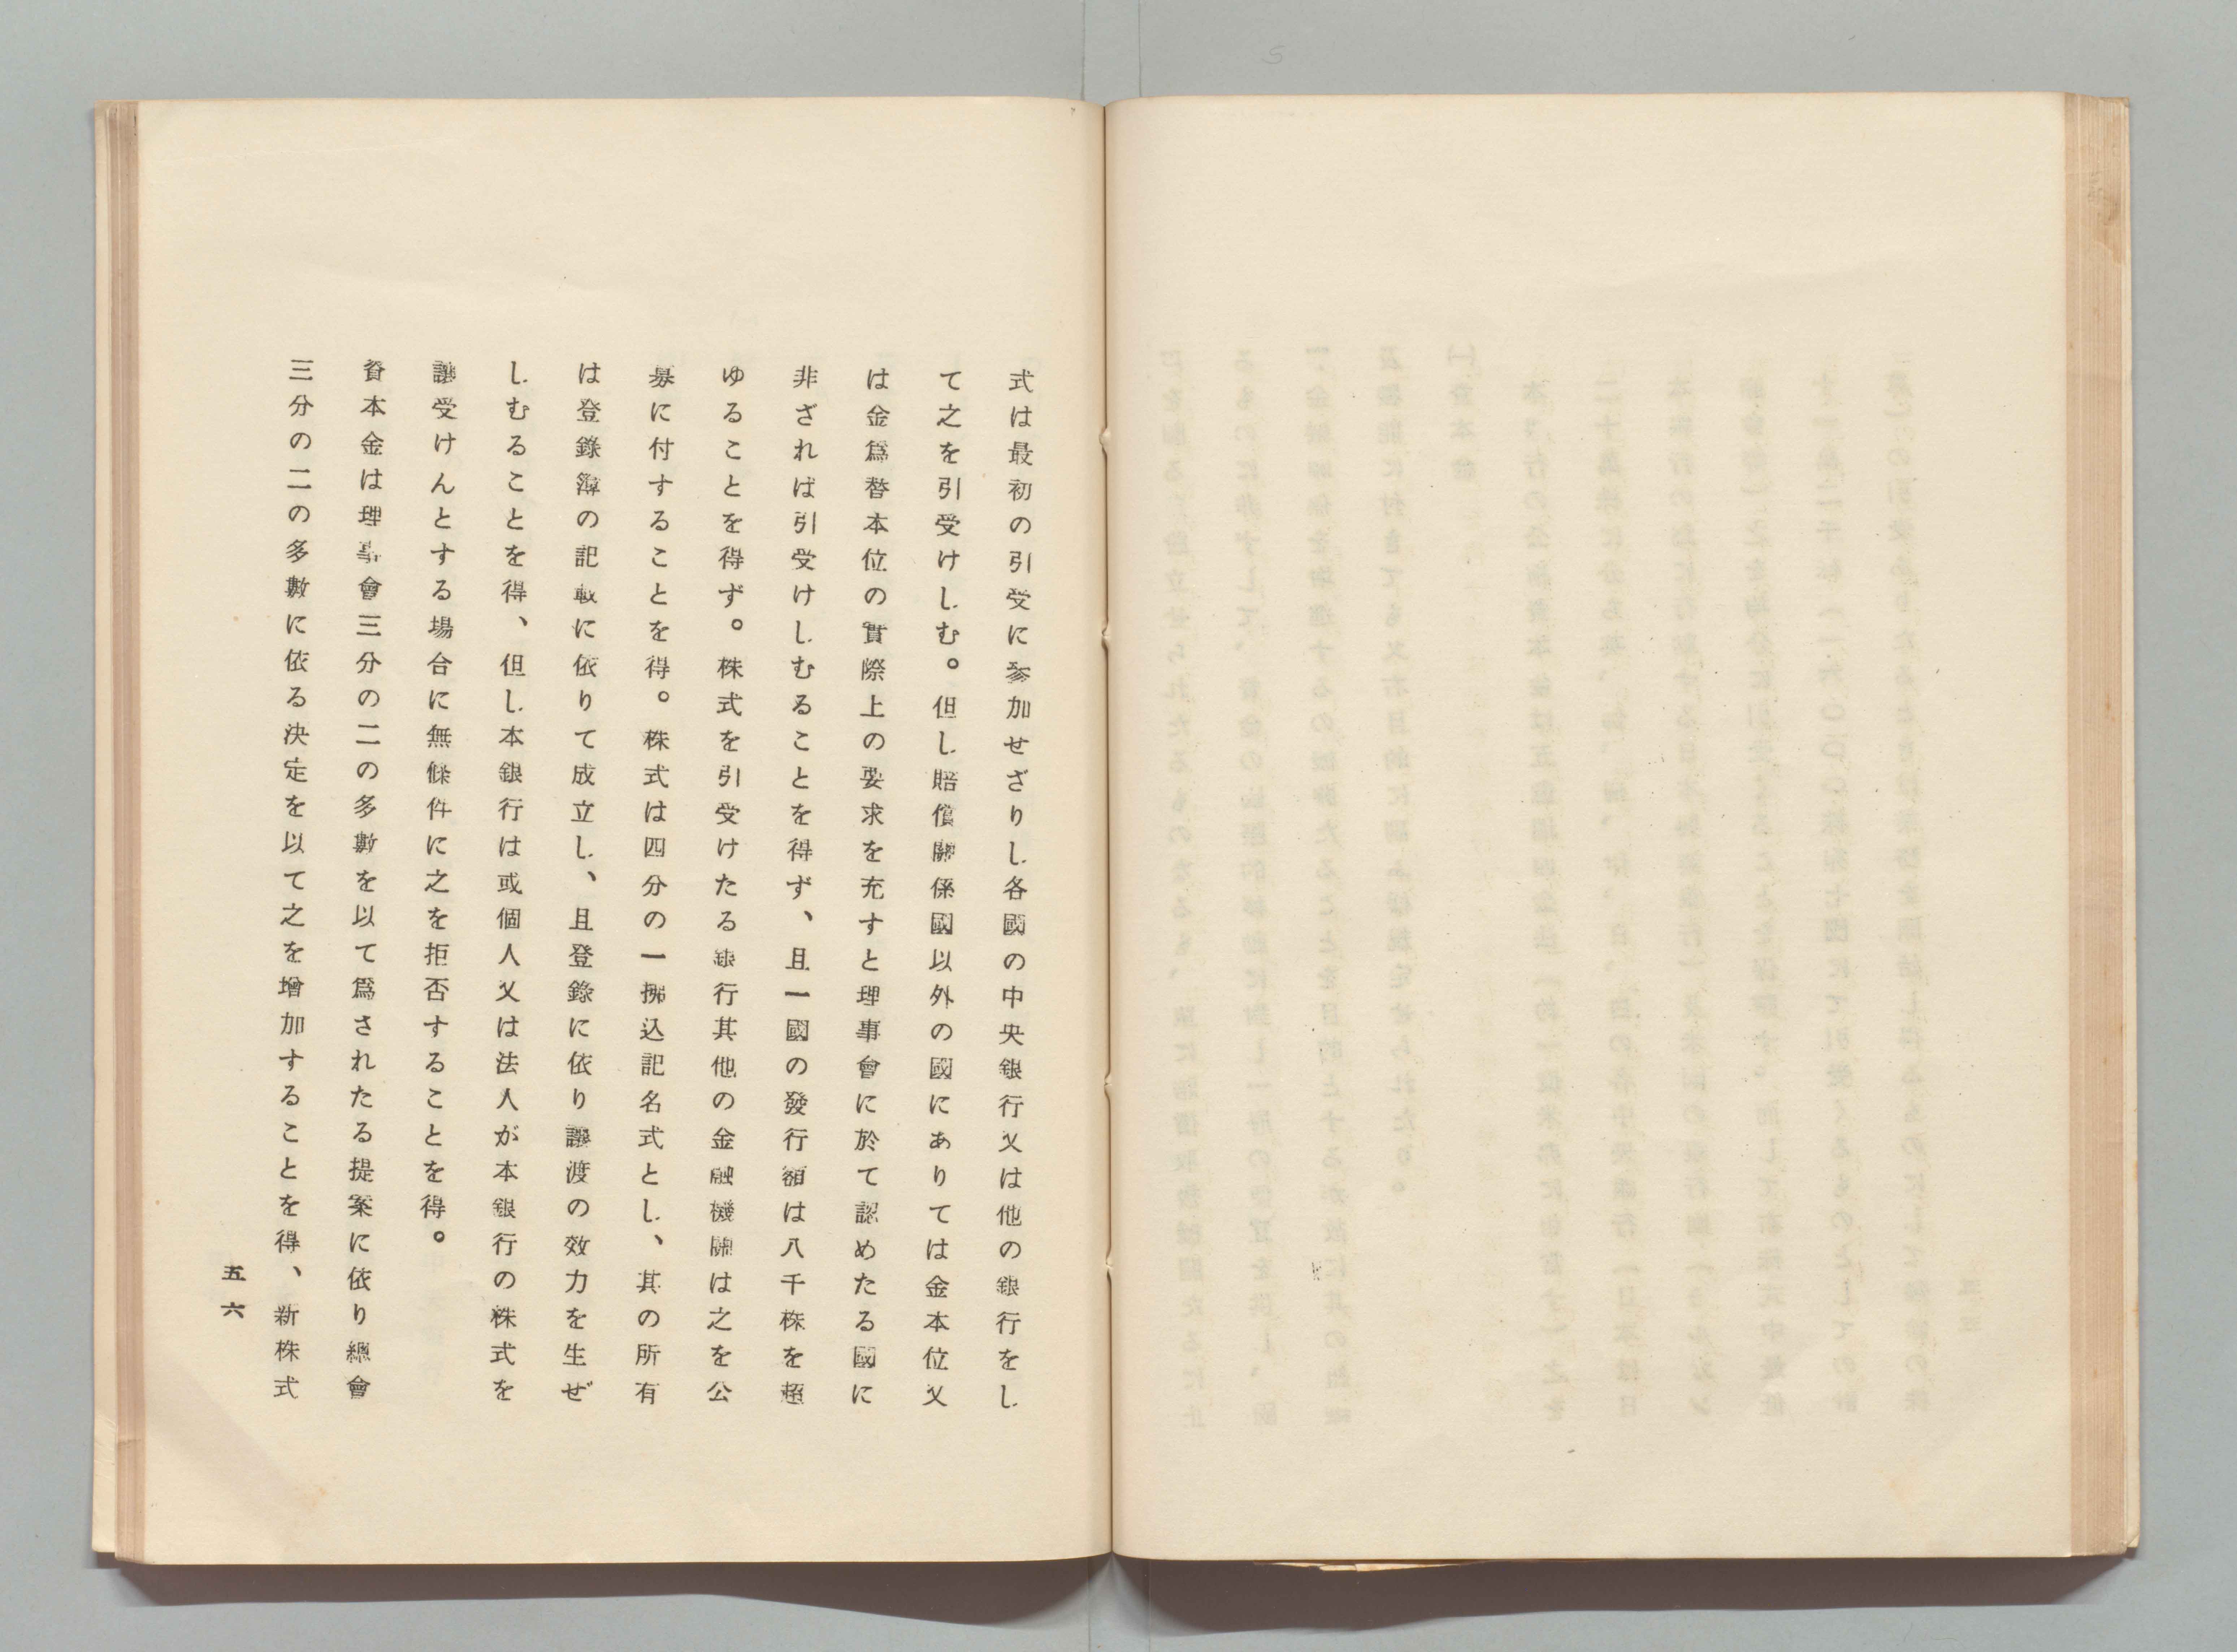 式は最初の引受に參加せざりし各國の中央銀行又は他の銀行をし
て之を引受けしむ。但し賠償關係國以外の國にありては金本位又
は金爲替本位の實際上の要求を充すと理事會に於て認めたる國に
非ざれば引受けしむることを得ず、且一國の發行額は八千株を超
ゆることを得ず。株式を引受けたる銀行其他の金融機關は之を公
募に付することを得。株式は四分の一拂込記名式とし、其の所有
は登錄簿の記載に依りて成立し、且登錄に依り讓渡の效力を生ぜ
しむることを得、但し本銀行は或個人又は法人が本銀行の株式を
讓受けんとする場合に無條件に之を拒否することを得。
資本金は理事會三分の二の多數を以て爲されたる提案に依り總會
三分の二の多數に依る決定を以て之を增加することを得、新株式
五六